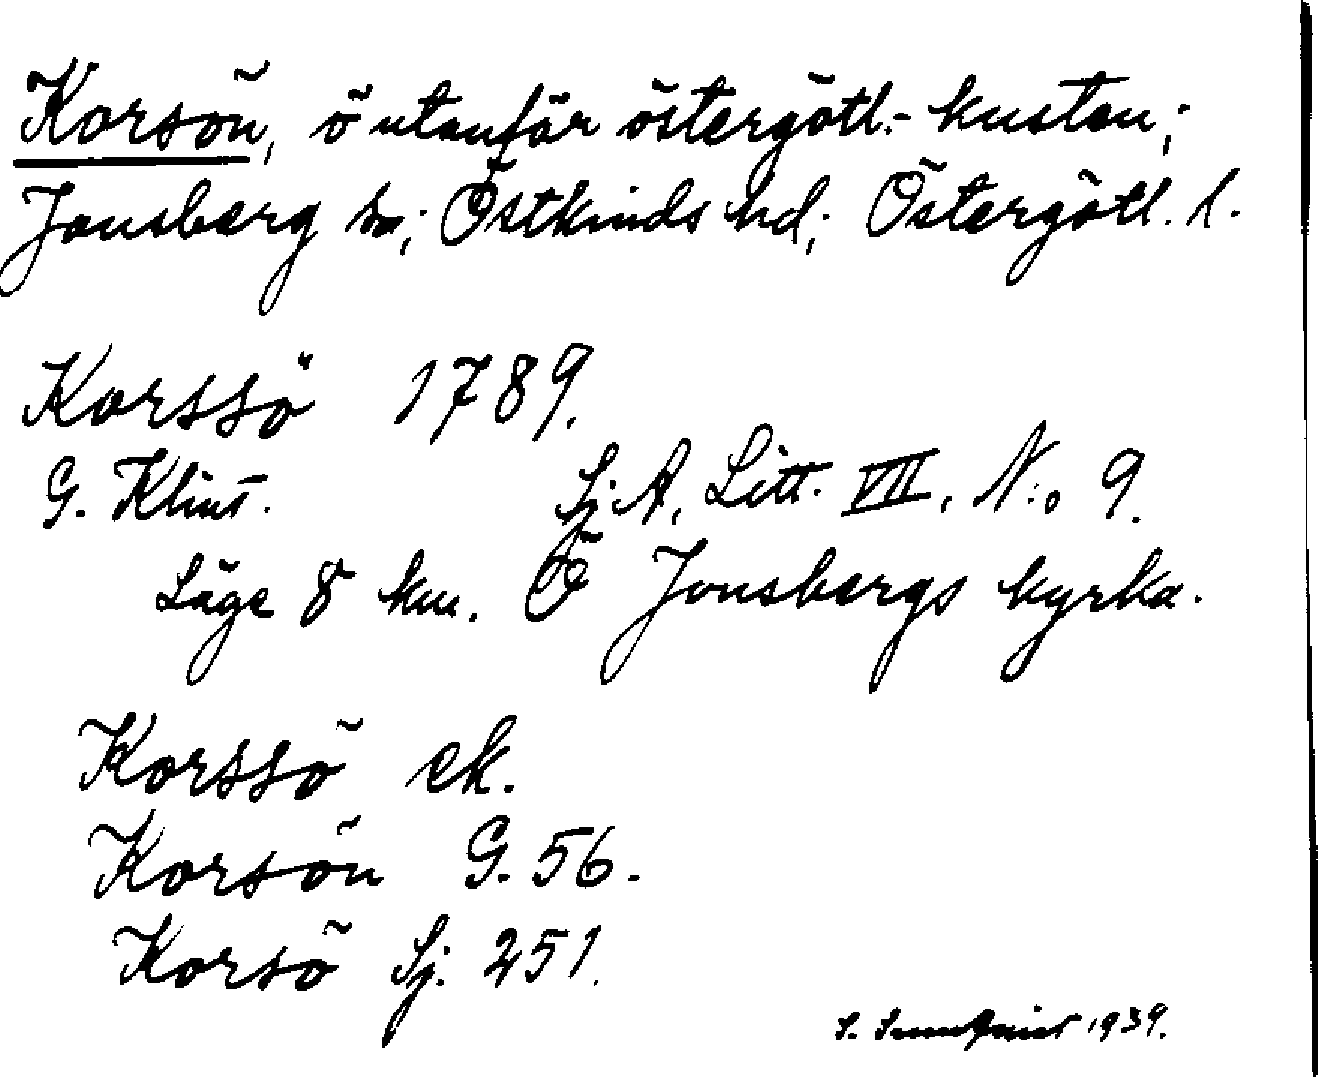 Korsön, ö utanför östergötl.-kusten;
Jonsberg sn; Östkinds hd; Östergötl. l.
Korssö 1789.
G. Klint. Sj. A, Litt. VII, N:o 9.
Läge 8 km. Ö Jonsbergs kyrka.
Korssö ek.
Korsön G. 56.
Korsö Sj. 251.
S. 1939.